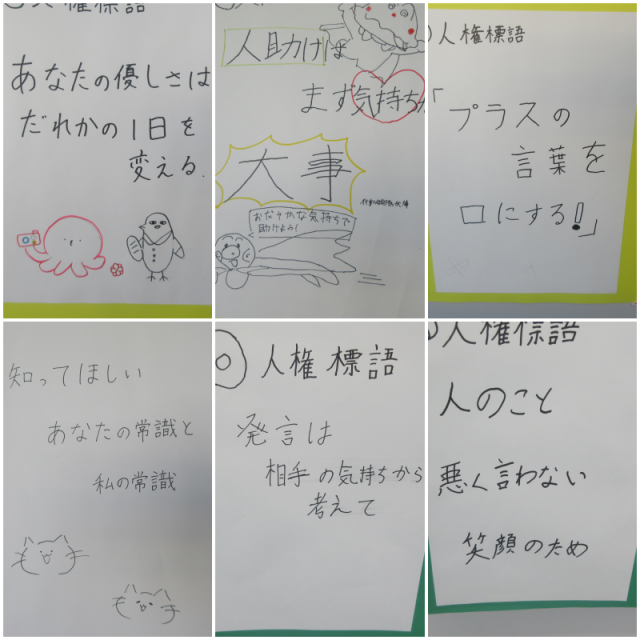 人権標語
あなたの優しさは
だれかの1日を
変える.
人助けは
まず気持ちが
大事
おだやかな気持ちで
助けよう!
人権標語
「プラスの
言葉を
口にする!」
知ってほしい
あなたの常識と
私の常識
◎人権標語
発言は
相手の気持ちから
考えて
人権標語
人のこと
悪く言わない
笑顔のため